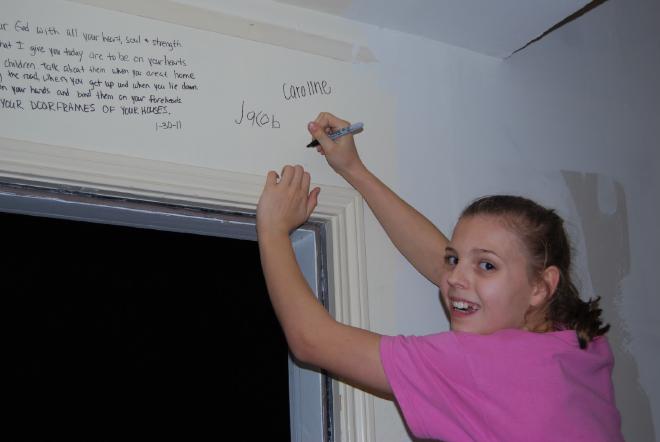 ur God with all your heart, soul & strength
hat I give you today are to be on your hearts
children. Talk about them when you are at home
the road, when you get up and when you lie down
on your hands and bind them on your foreheads
YOUR DOORFRAMES OF YOUR HOUSES.
1-30-11
Caroline
Jacob